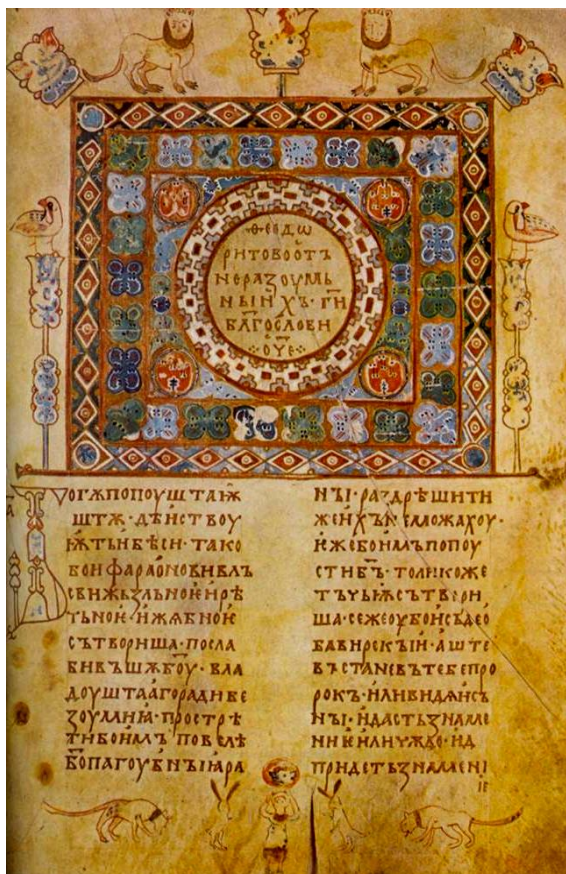 ·ѲЕОДѠ
РИТОВООТЪ
НЕРАЗОУМЬ
НЫИХЪ·ГИ
БЛГОСЛОВИ
·ОЧЕ·
огѫпопоуштаѭ
штѫ·дѣиствоу
ѭтьибѣси·тако
боифараоновивлъ
свижьзльноюирѣ
чьною·ижѧбною
сътвориша·посла
бивъшѫбоу·вла
доуштаагорадибе
зоумиꙗ·прострѣ
тибоимъповелѣ
бъпагоубнꙑꙗра
нꙑ·раздрѣшити
жеихънеможахоу·
ижебоимъпопоу
стибъ·толикоже
тъчьѭсътвори
ша·сежеоубои
бавирекꙑи·аште
въстаневътебепро
рокъ·иливидѧисъ
нꙑ·идастьзнаме
ниѥиличюдо·ид
придетьзнамени
ѥ